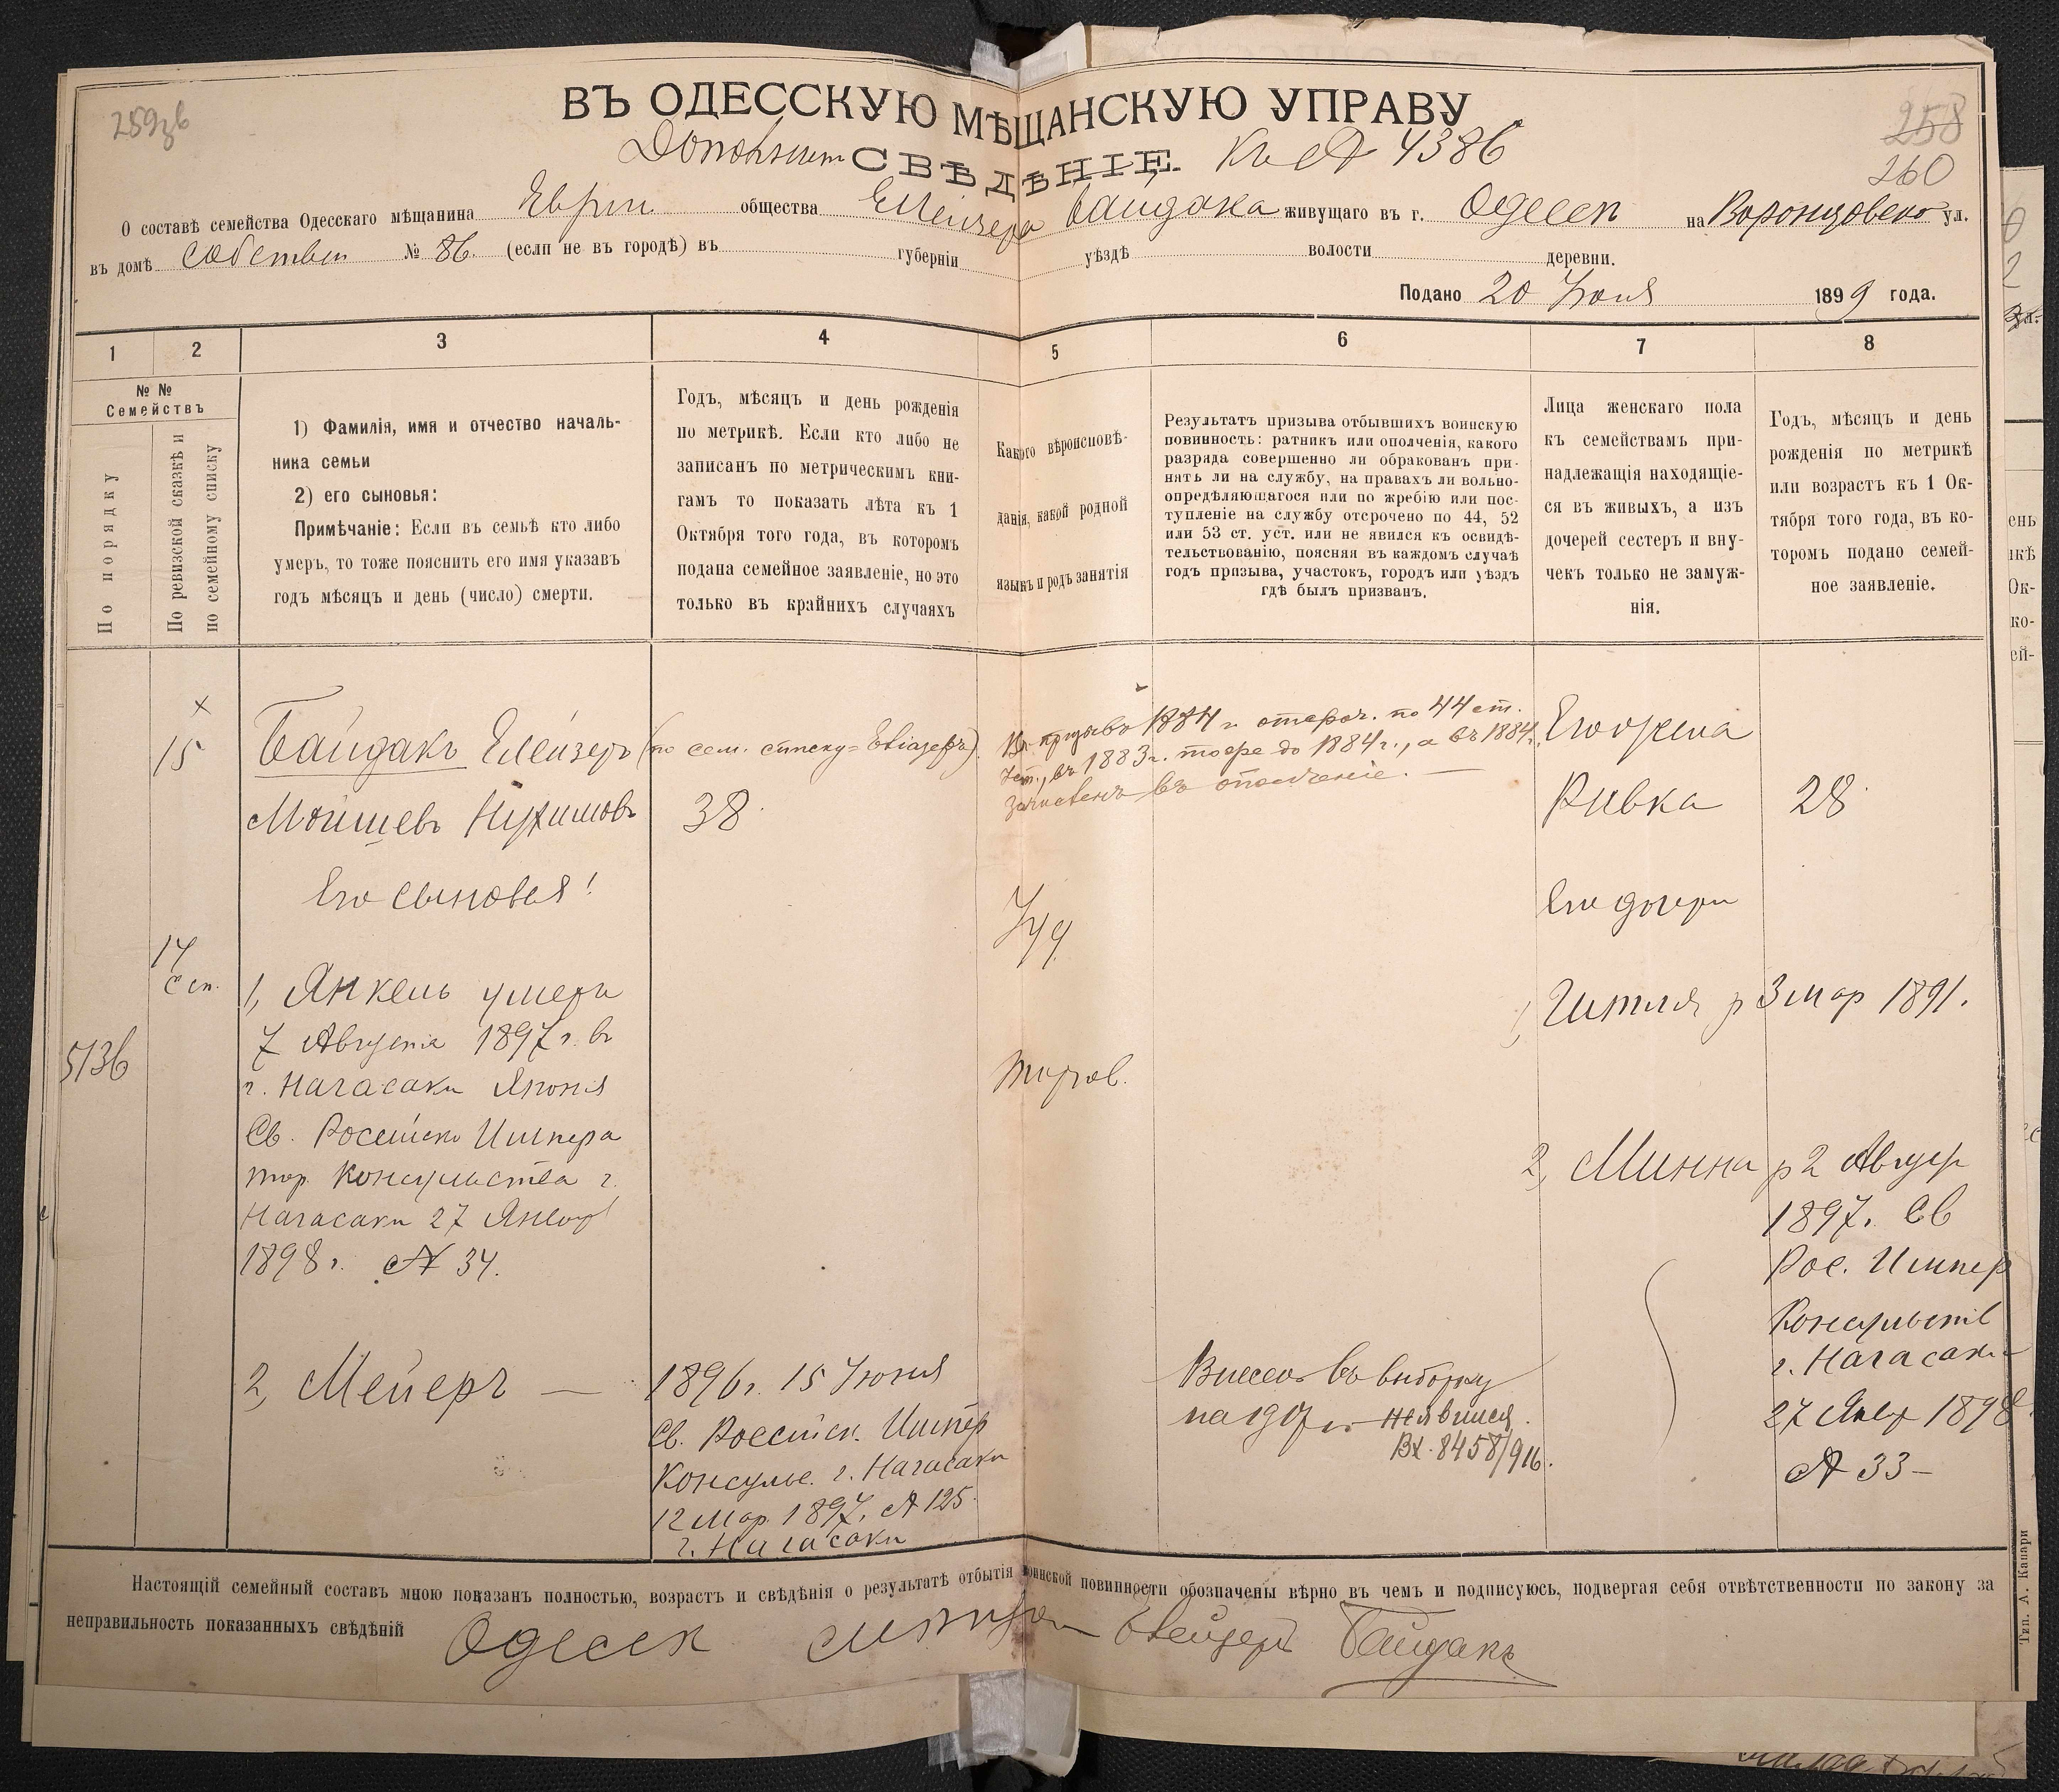 259зв
ВЪ ОДЕССКУЮ МѢЩАНСКУЮ УПРАВУ
258
260
СВѢДѢНІЕ. Къ № 4386
О составѣ семейства Одесскаго мѣщанина Еврей. общества Елейзера Байдака живущаго въ г. Одессѣ на Воронцовско ул.
въ домѣ собствен № 86 (если не въ городѣ) въ губерніи уѣздѣ волости деревни.
Подано 20 Іюня 1899 года.
1
2
3
4
5
6
7
8
№ №
Семействъ
По порядку
По ревизской сказкѣ и
по семейному списку
1) Фамилія, имя и отчество началь-
ника семьи
2) его сыновья:
Примѣчаніе: Если въ семьѣ кто либо
умеръ, то тоже пояснить его имя указавъ
годъ мѣсяцъ и день (число) смерти.
Годъ, мѣсяцъ и день рожденія
по метрикѣ. Если кто либо не
записанъ по метрическимъ кни-
гамъ то показать лѣта къ 1
Октября того года, въ которомъ
подана семейное заявленіе, но это
только въ крайнихъ случаяхъ
Какого вѣроисповѣ-
данія, какой родной
языкъ и родъ занятія
Результатъ призыва отбывшихъ воинскую
повинность: ратникъ или ополченія, какого
разряда совершенно ли обракованъ при-
нять ли на службу, на правахъ ли вольно-
опредѣляющагося или по жребію или пос-
тупленіе на службу отсрочено по 44, 52
или 53 ст. уст. или не явился къ освидѣ-
тельствованію, поясняя въ каждомъ случаѣ
годъ призыва, участокъ, городъ или уѣздъ
гдѣ былъ призванъ.
Лица женскаго пола
къ семействамъ при-
надлежащія находящіе-
ся въ живыхъ, а изъ
дочерей сестеръ и вну-
чекъ только не замуж-
нія.
Годъ, мѣсяцъ и день
рожденія по метрикѣ
или возрастъ къ 1 Ок-
тября того года, въ ко-
торомъ подано семей-
ное заявленіе.
15
Байдакъ Елейзеръ (по сем. списку = Евіазеръ)
Мойшевъ Нухимовъ
38
отсроч. по 44 ст.
въ 1883 г. тоже до 1884 г., а въ 1884 г.
зачисленъ въ ополченіе.
Его жена
Ривка 28
Его сыновья:
Іуд
Его дочери
14
сп.
5136
1, Янкель умеръ
7 Августа 1897 г. въ
г. Нагасаки Японія
Св. Россійско Импера
тор. Консульства г.
Нагасаки 27 Января
1898 г. № 34.
торгов.
1, Гитля р 3 мар 1891.
2, Минна р 2 Август
1897. Св
Рос. Импер
Консульств
г. Нагасаки
27 Янвр 1898
№ 33 –
2, Мейеръ —
1896 г. 15 Іюня
Св. Россійск. Импер
Консульс. г. Нагасаки
12 Мар. 1897. № 125
г. Нагасаки
Внесенъ въ выборку
на 1917 г. неявился.
Вх. 8458/916.
Настоящій семейный составъ мною показанъ полностью, возрастъ и свѣдѣнія о результатѣ отбытія воинской повинности обозначены вѣрно въ чемъ и подписуюсь, подвергая себя отвѣтственности по закону за
неправильность показанныхъ свѣдѣній
Одесск Елейзеръ Байдакъ
Тип. А. Капари